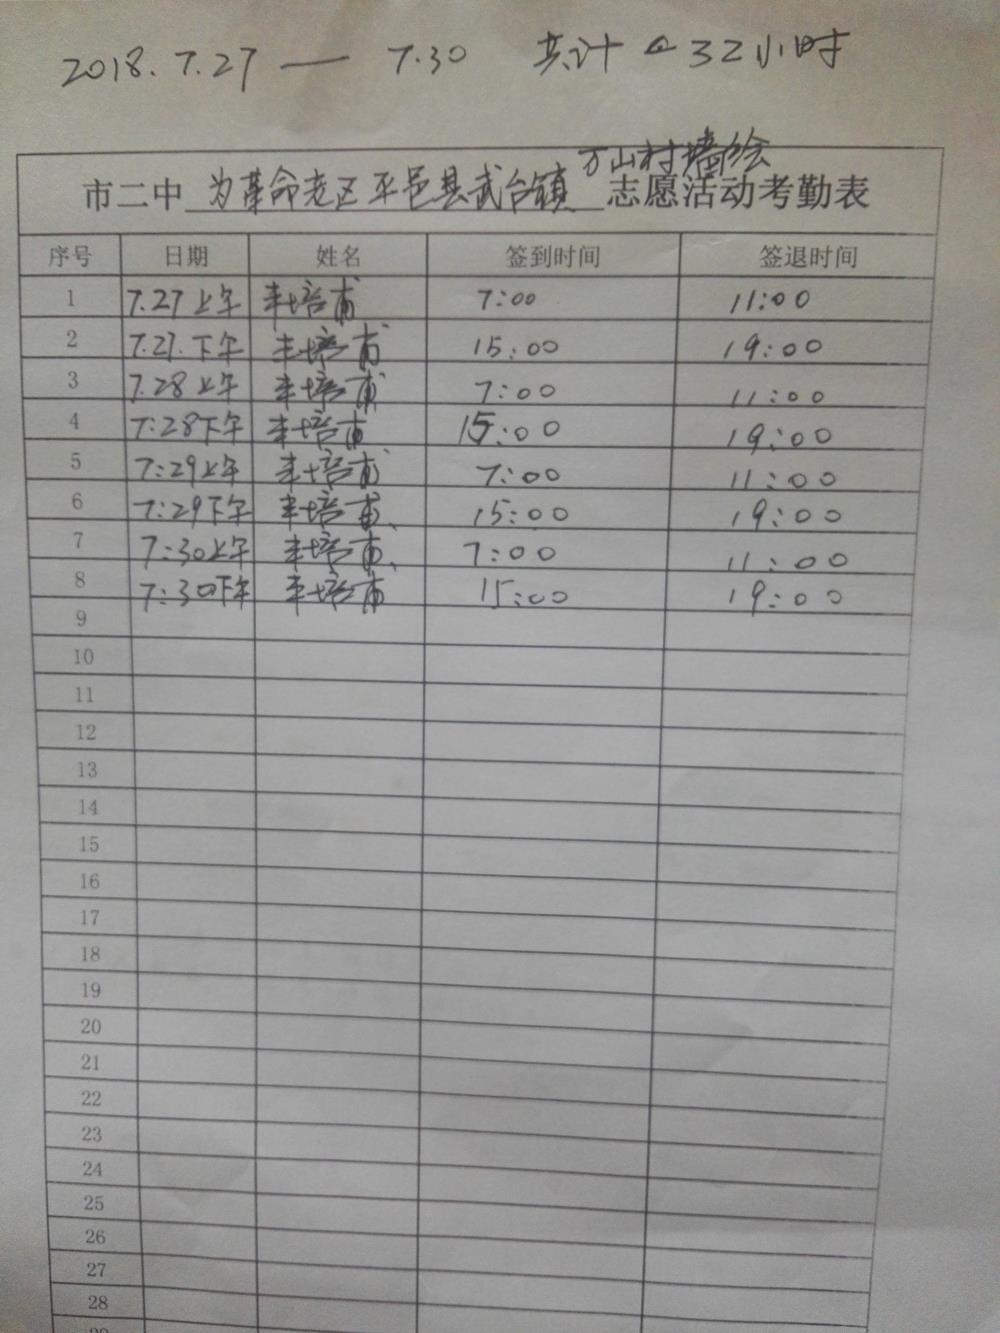 2018.7.27 — 7.30 共计 32小时
万山村墙绘
市二中 为革命老区平邑县武台镇 志愿活动考勤表
序号 日期 姓名 签到时间 签退时间
1 7.27上午 丰培甫 7:00 11:00
2 7.27.下午 丰培甫 15:00 19:00
3 7.28上午 丰培甫 7:00 11:00
4 7:28下午 丰培甫 15:00 19:00
5 7:29上午 丰培甫 7:00 11:00
6 7:29下午 丰培甫 15:00 19:00
7 7:30上午 丰培甫 7:00 11:00
8 7:30下午 丰培甫 15:00 19:00
9
10
11
12
13
14
15
16
17
18
19
20
21
22
23
24
25
26
27
28